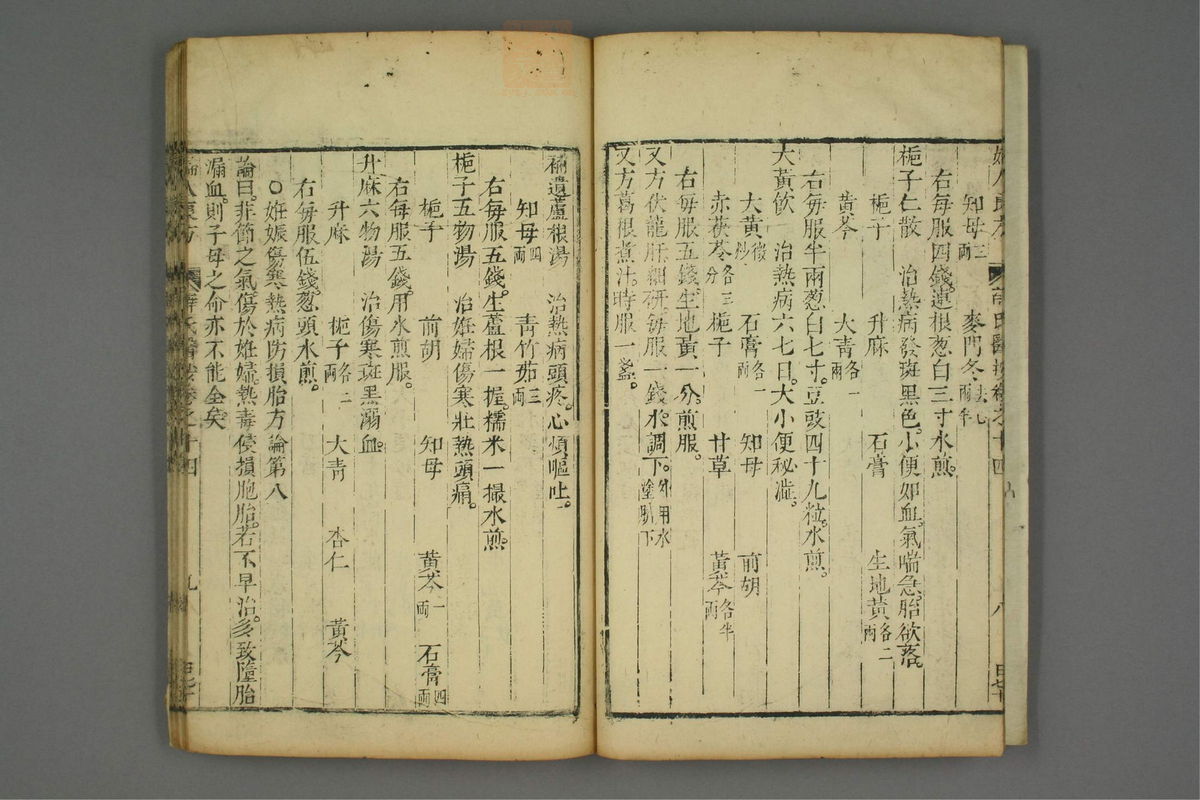 知母三兩 麥門冬去心兩半
右每服四錢連根葱白三寸水煎
梔子仁散 治熱病發斑黑色小便如血氣喘急胎欲落
梔子 升麻 石膏 生地黃各二兩
黃芩 大青各一兩
右每服半兩葱白七寸豆豉四十九粒水煎
大黃飲 治熱病六七日大小便秘澁
大黃微炒 石膏各一兩 知母 前胡
赤茯苓各三分 梔子 甘草 黃芩各半兩
右每服五錢生地黃一分煎服
又方伏龍肝細研每服一錢水調下外用水塗臍下
又方葛根煮汁時服一盞
補遺蘆根湯 治熱病頭疼心煩嘔吐
知母四兩 青竹茹三兩
右每服五錢生蘆根一握糯米一撮水煎
梔子五物湯 治妊婦傷寒壯熱頭痛
梔子 前胡 知母 黃芩一兩 石膏四兩
右每服五錢用水煎服
升麻六物湯 治傷寒斑黑溺血
升麻 梔子各二兩 大青 杏仁 黃芩
右每服伍錢葱頭水煎
○妊娠傷寒熱病防損胎方論第八
論曰非節之氣傷於妊婦熱毒侵損胞胎若不早治多致墮胎
漏血則子母之命亦不能全矣